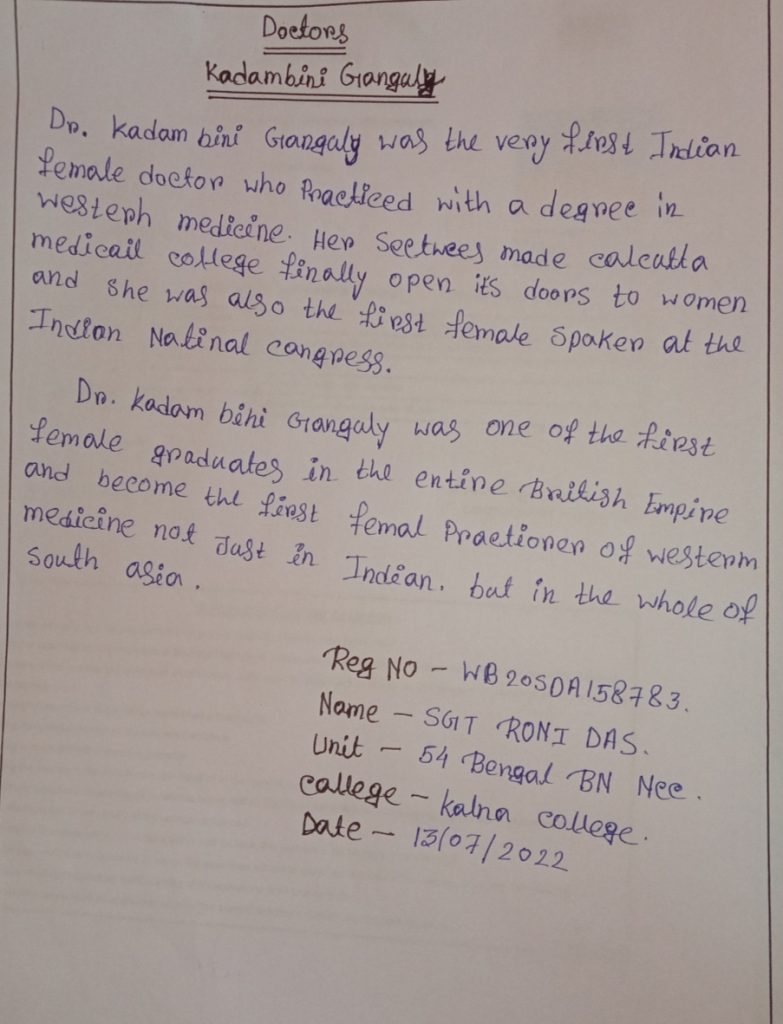 Doctors
Kadambini Ganguly
Dr. Kadambini Ganguly was the very first Indian
female doctor who Practiced with a degree in
western medicine. Her Seetwees made calcutta
medicail college finally open it's doors to women
and she was also the first female Spaker at the
Indian Natinal cangress.
Dr. Kadambini Ganguly was one of the first
female graduates in the entire British Empire
and become the first femal Practioner of western
medicine not Just in Indian. but in the whole of
South asia.
Reg No - WB20SDA158783.
Name - SGT RONI DAS.
Unit - 54 Bengal BN Ncc.
callege - Kalna college.
Date - 13/07/2022